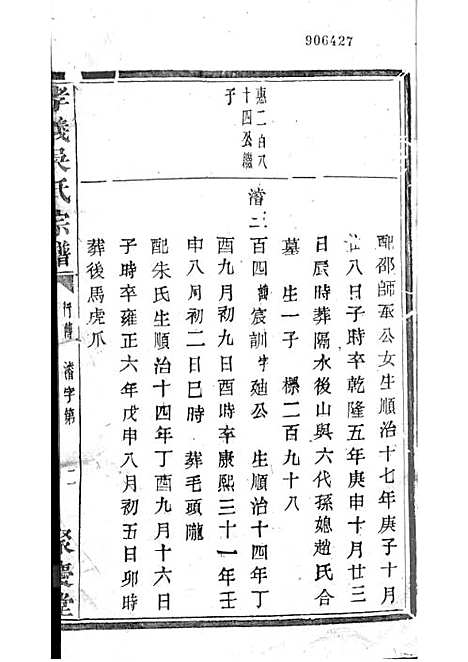 906427
配邵師承公女生順治十七年庚子十月
廿八日子時卒乾隆五年庚申十月廿三
日辰時葬隔水後山與六代孫媳趙氏合
墓 生一子 櫄二百九十八
惠二百八
十四公繼
子
濬二百四諱宸訓字廸公 生順治十四年丁
酉九月初九日酉時卒康熙三十一年壬
申八月初二日巳時 葬毛頭隴
配朱氏生順治十四年丁酉九月十六日
子時卒雍正六年戊申八月初五日卯時
葬後馬虎爪
孝義吳氏宗譜 行傳 濬字第 二 聚慶堂